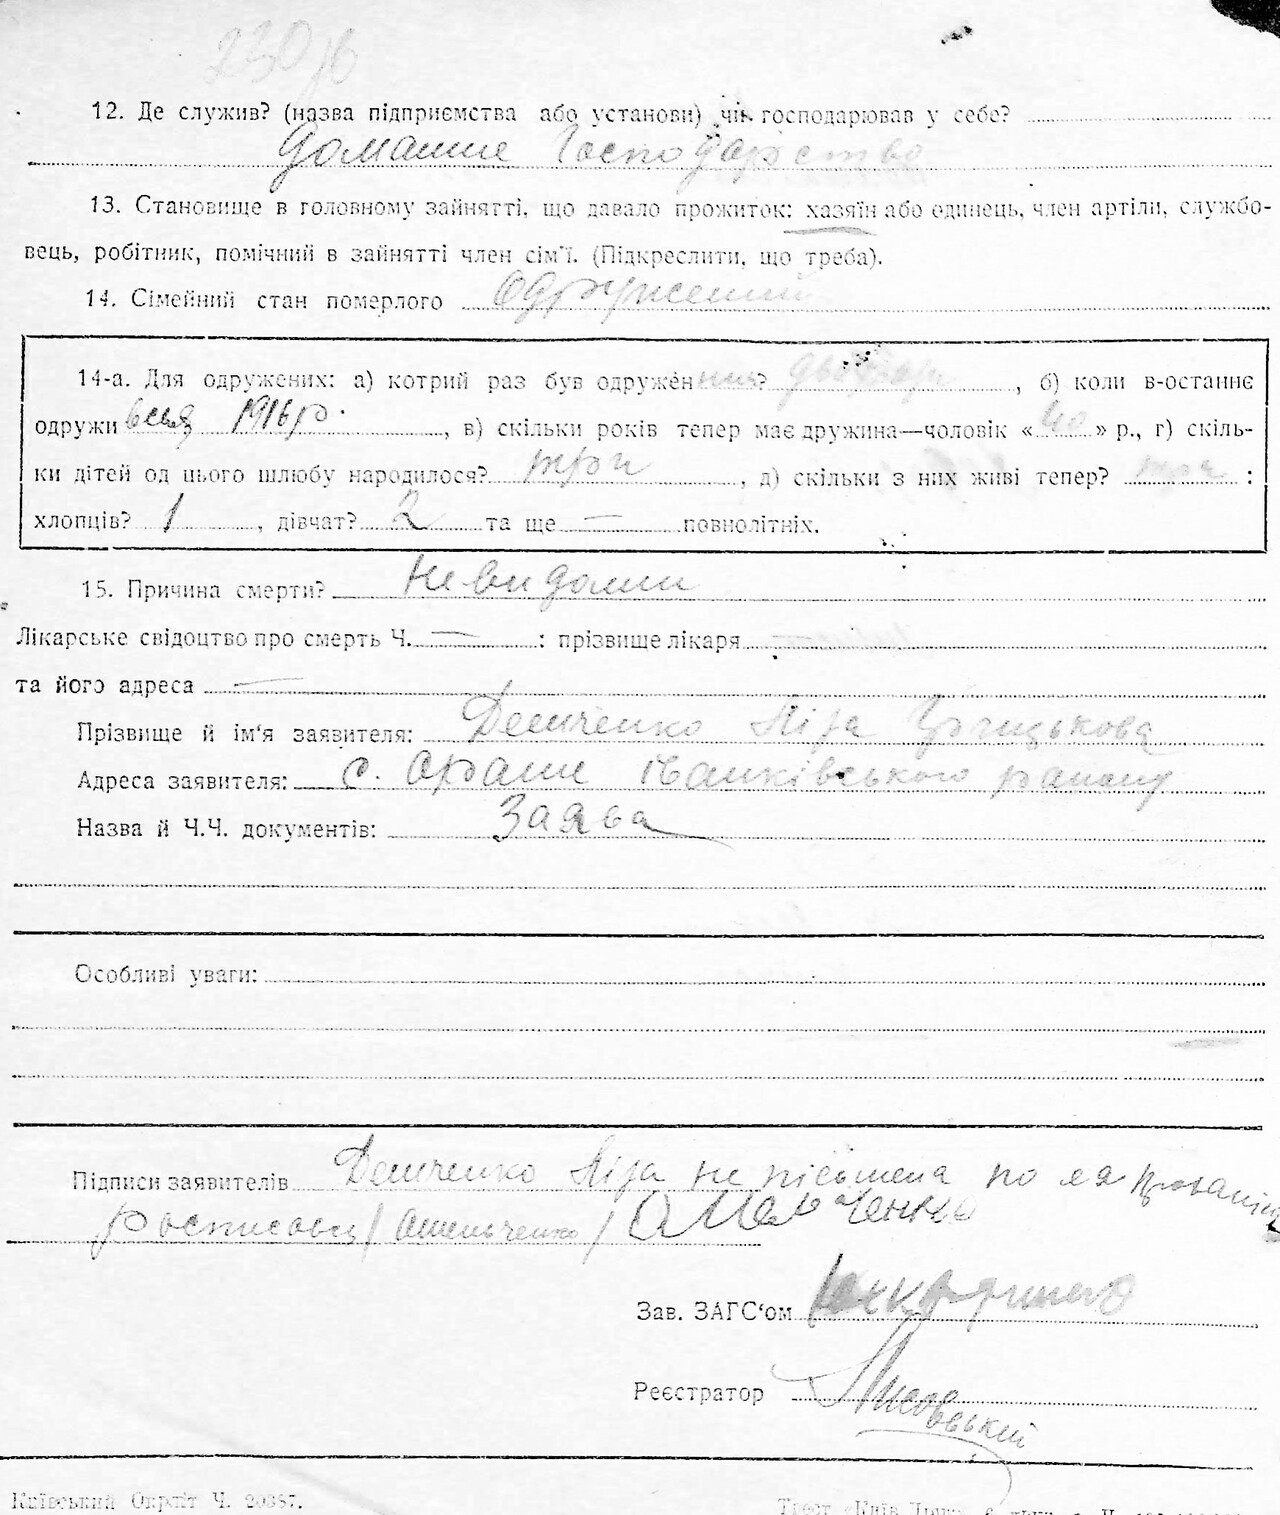 230/6
12. Де служив? (назва підприємства або установи) чи господарював у себе?
Домашнє Господарство
13. Становище в головному зайнятті, що давало прожиток: хазяїн або одинець, член артіли, службо-
вець, робітник, помічний в зайнятті член сім'ї. (Підкреслити, що треба).
14. Сімейний стан померлого Одружений
14-а. Для одружених: а) котрий раз був одружен , б) коли в-останнє
одружився 1916 р. , в) скільки років тепер має дружина—чоловік «40» р., г) скіль-
ки дітей од цього шлюбу народилося? три , д) скільки з них живі тепер? три :
хлопців? 1 , дівчат? 2 та ще — повнолітніх.
15. Причина смерти? Невидоми
Лікарське свідоцтво про смерть Ч. — : прізвище лікаря
та його адреса —
Прізвище й ім'я заявителя: Демченко Ліза
Адреса заявителя: с. Орани Іванківського району
Назва й Ч.Ч. документів: Заява
Особливі уваги:
Підписи заявителів Демченко Ліза не пісьмена по ея
росписовц /Омельченко/ Омельченко
Зав. ЗАГС'ом
Реєстратор Лисовський
Київський Окрліт Ч. 20387.
Трест «Київ-Друк»